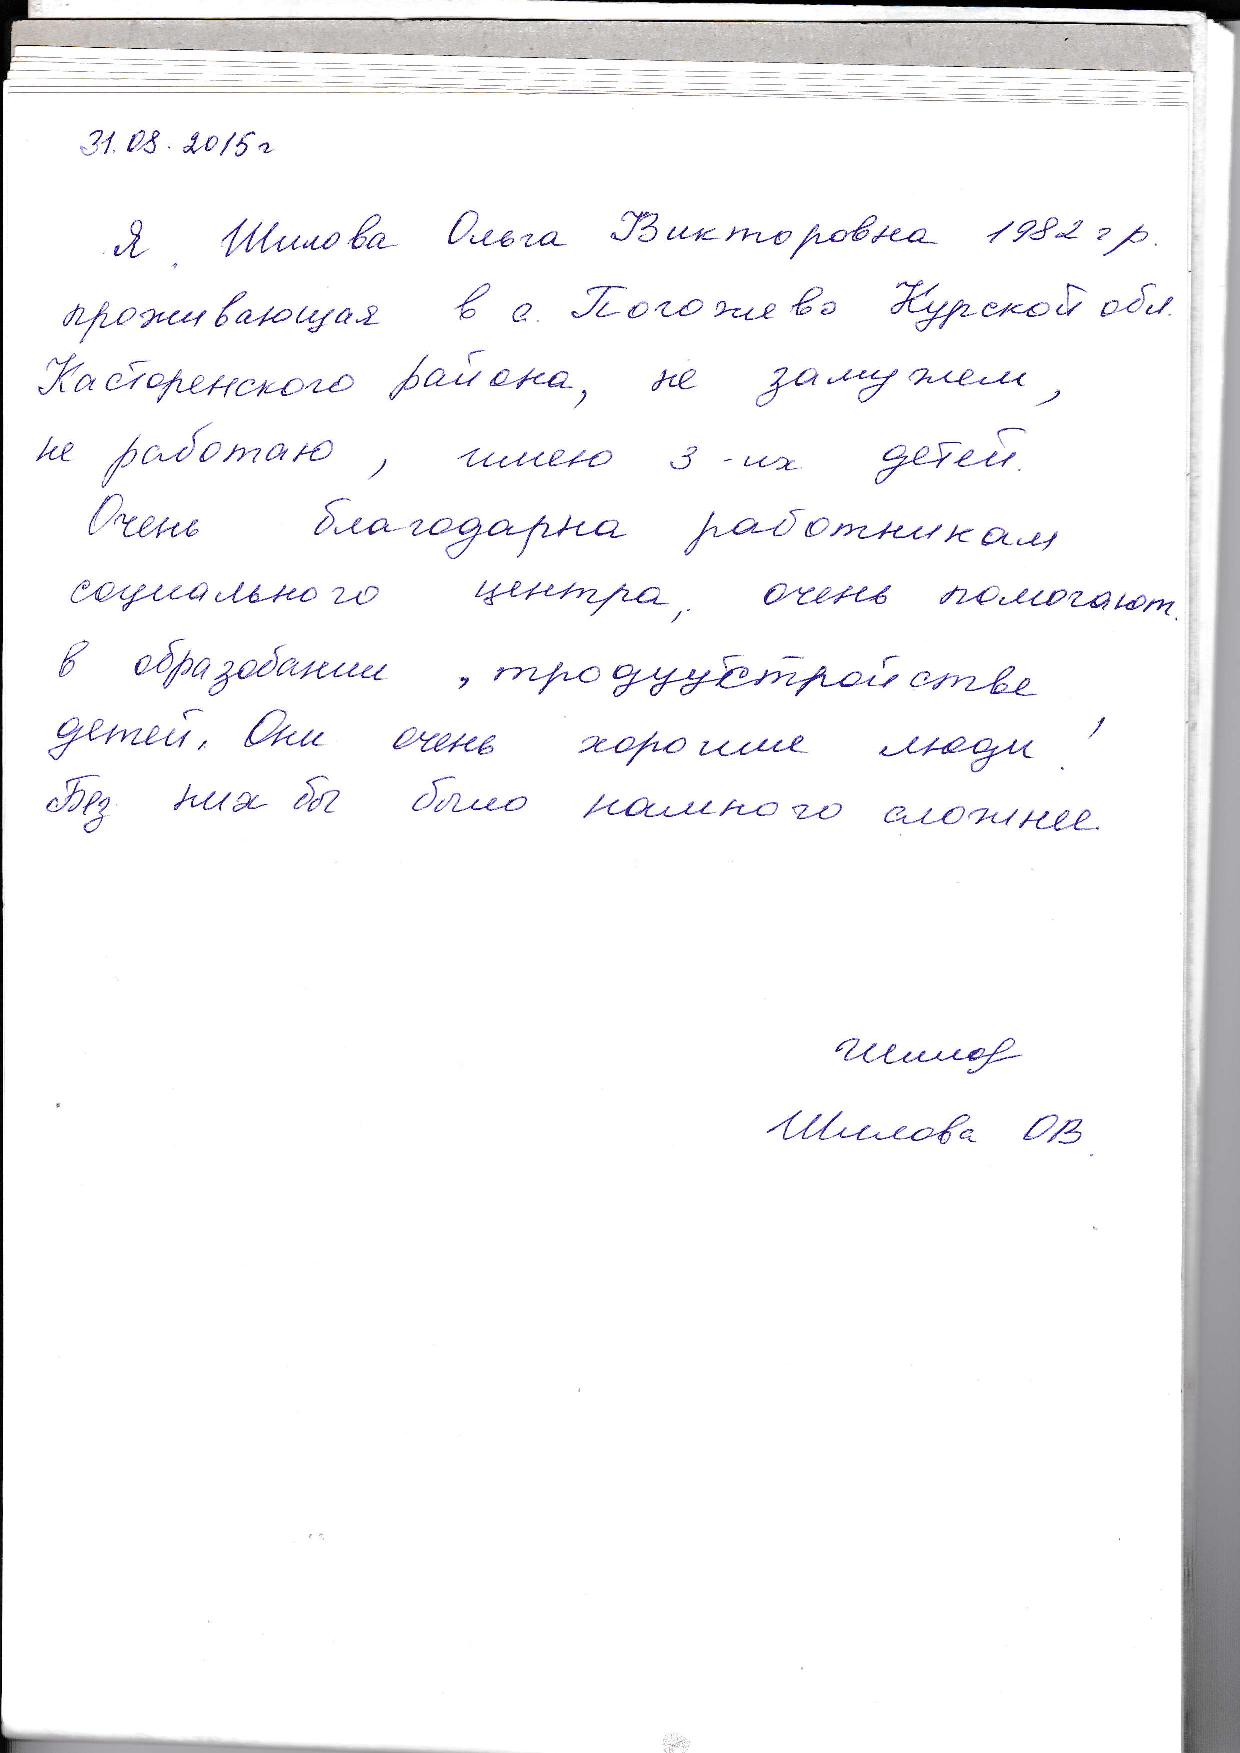 31.08.2015г
Я Шилова Ольга Викторовна 1982 г р.
проживающая в с. Погожево Курской обл.
Касторенского района, не замужем,
не работаю, имею 3-их детей.
Очень благодарна работникам
социального центра, очень помогают
в образовании, трудуустройстве
детей. Они очень хорошие люди!
Без них бы было намного сложнее.
Шилова ОВ